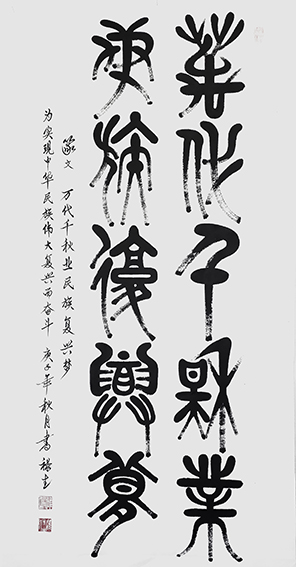 萬代千秋業
民族復興夢
篆文 万代千秋业民族复兴梦
为实现中华民族伟大复兴而奋斗 庚子年秋月書